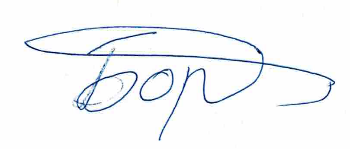 Бор